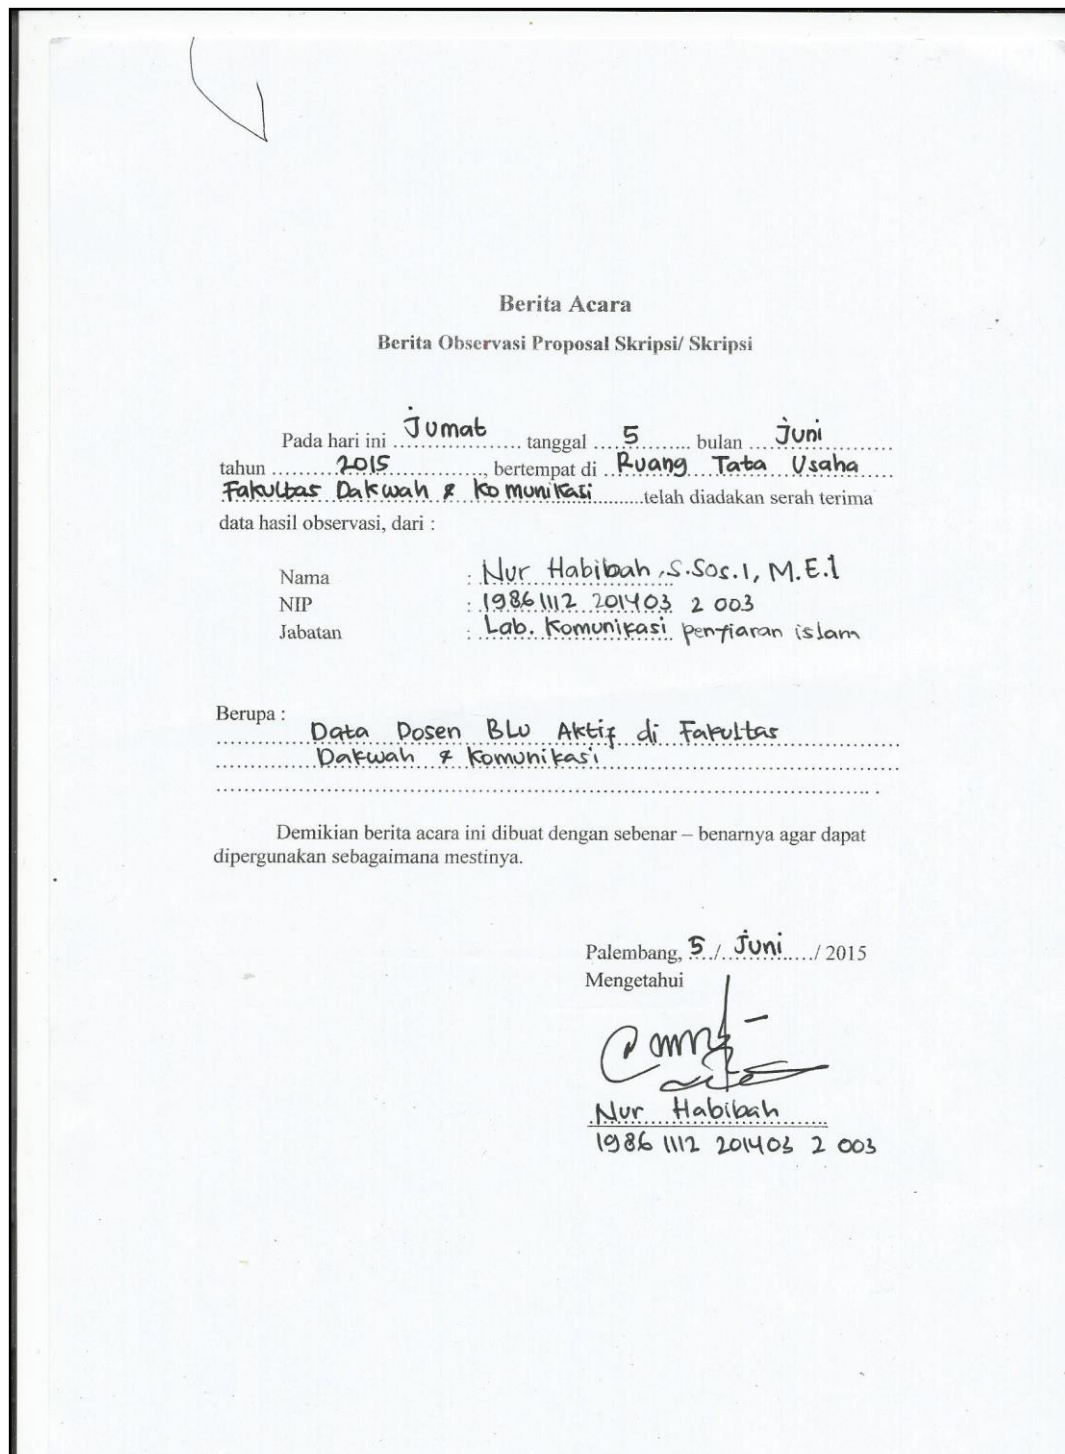 Berita Acara
Berita Observasi Proposal Skripsi/ Skripsi
Pada hari ini Jumat tanggal 5 bulan Juni
tahun 2015, bertempat di Ruang Tata Usaha
Fakultas Dakwah & Komunikasi telah diadakan serah terima
data hasil observasi, dari :
Nama : Nur Habibah, S.Sos.I, M.E.I
NIP : 19861112 201403 2 003
Jabatan : Lab. Komunikasi penyiaran islam
Berupa :
Data Dosen BLU Aktif di Fakultas
Dakwah & Komunikasi
Demikian berita acara ini dibuat dengan sebenar – benarnya agar dapat
dipergunakan sebagaimana mestinya.
Palembang, 5 / Juni / 2015
Mengetahui
Nur Habibah
1986 1112 201403 2 003